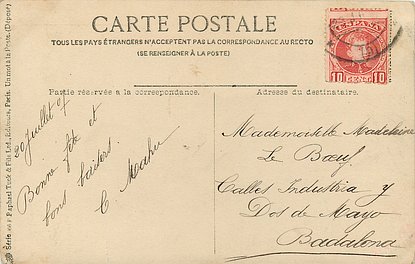 CARTE POSTALE
TOUS LES PAYS ÉTRANGERS N'ACCEPTENT PAS LA CORRESPONDANCE AU RECTO
(SE RENSEIGNER À LA POSTE)
Partie réservée a la correspondance.
Adresse du destinataire.
ESPAÑA
10 10
20 Juillet 07
Bonne fête et
bons baisers.
C. Maheu
Mademoiselle Madeleine
Le Bœuf
Calles Industria y
Dos de Mayo
Badalona
Raphael Tuck & Fils Ltd., Editeurs, Paris. Un mot à la Poste. (Déposé)